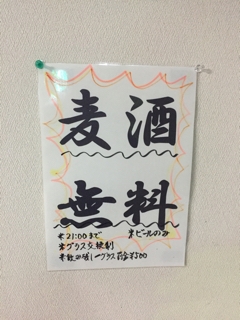 麦酒
無料
※21:00まで ※ビールのみ
※グラス交換制
※飲み残し一グラス罰金¥500